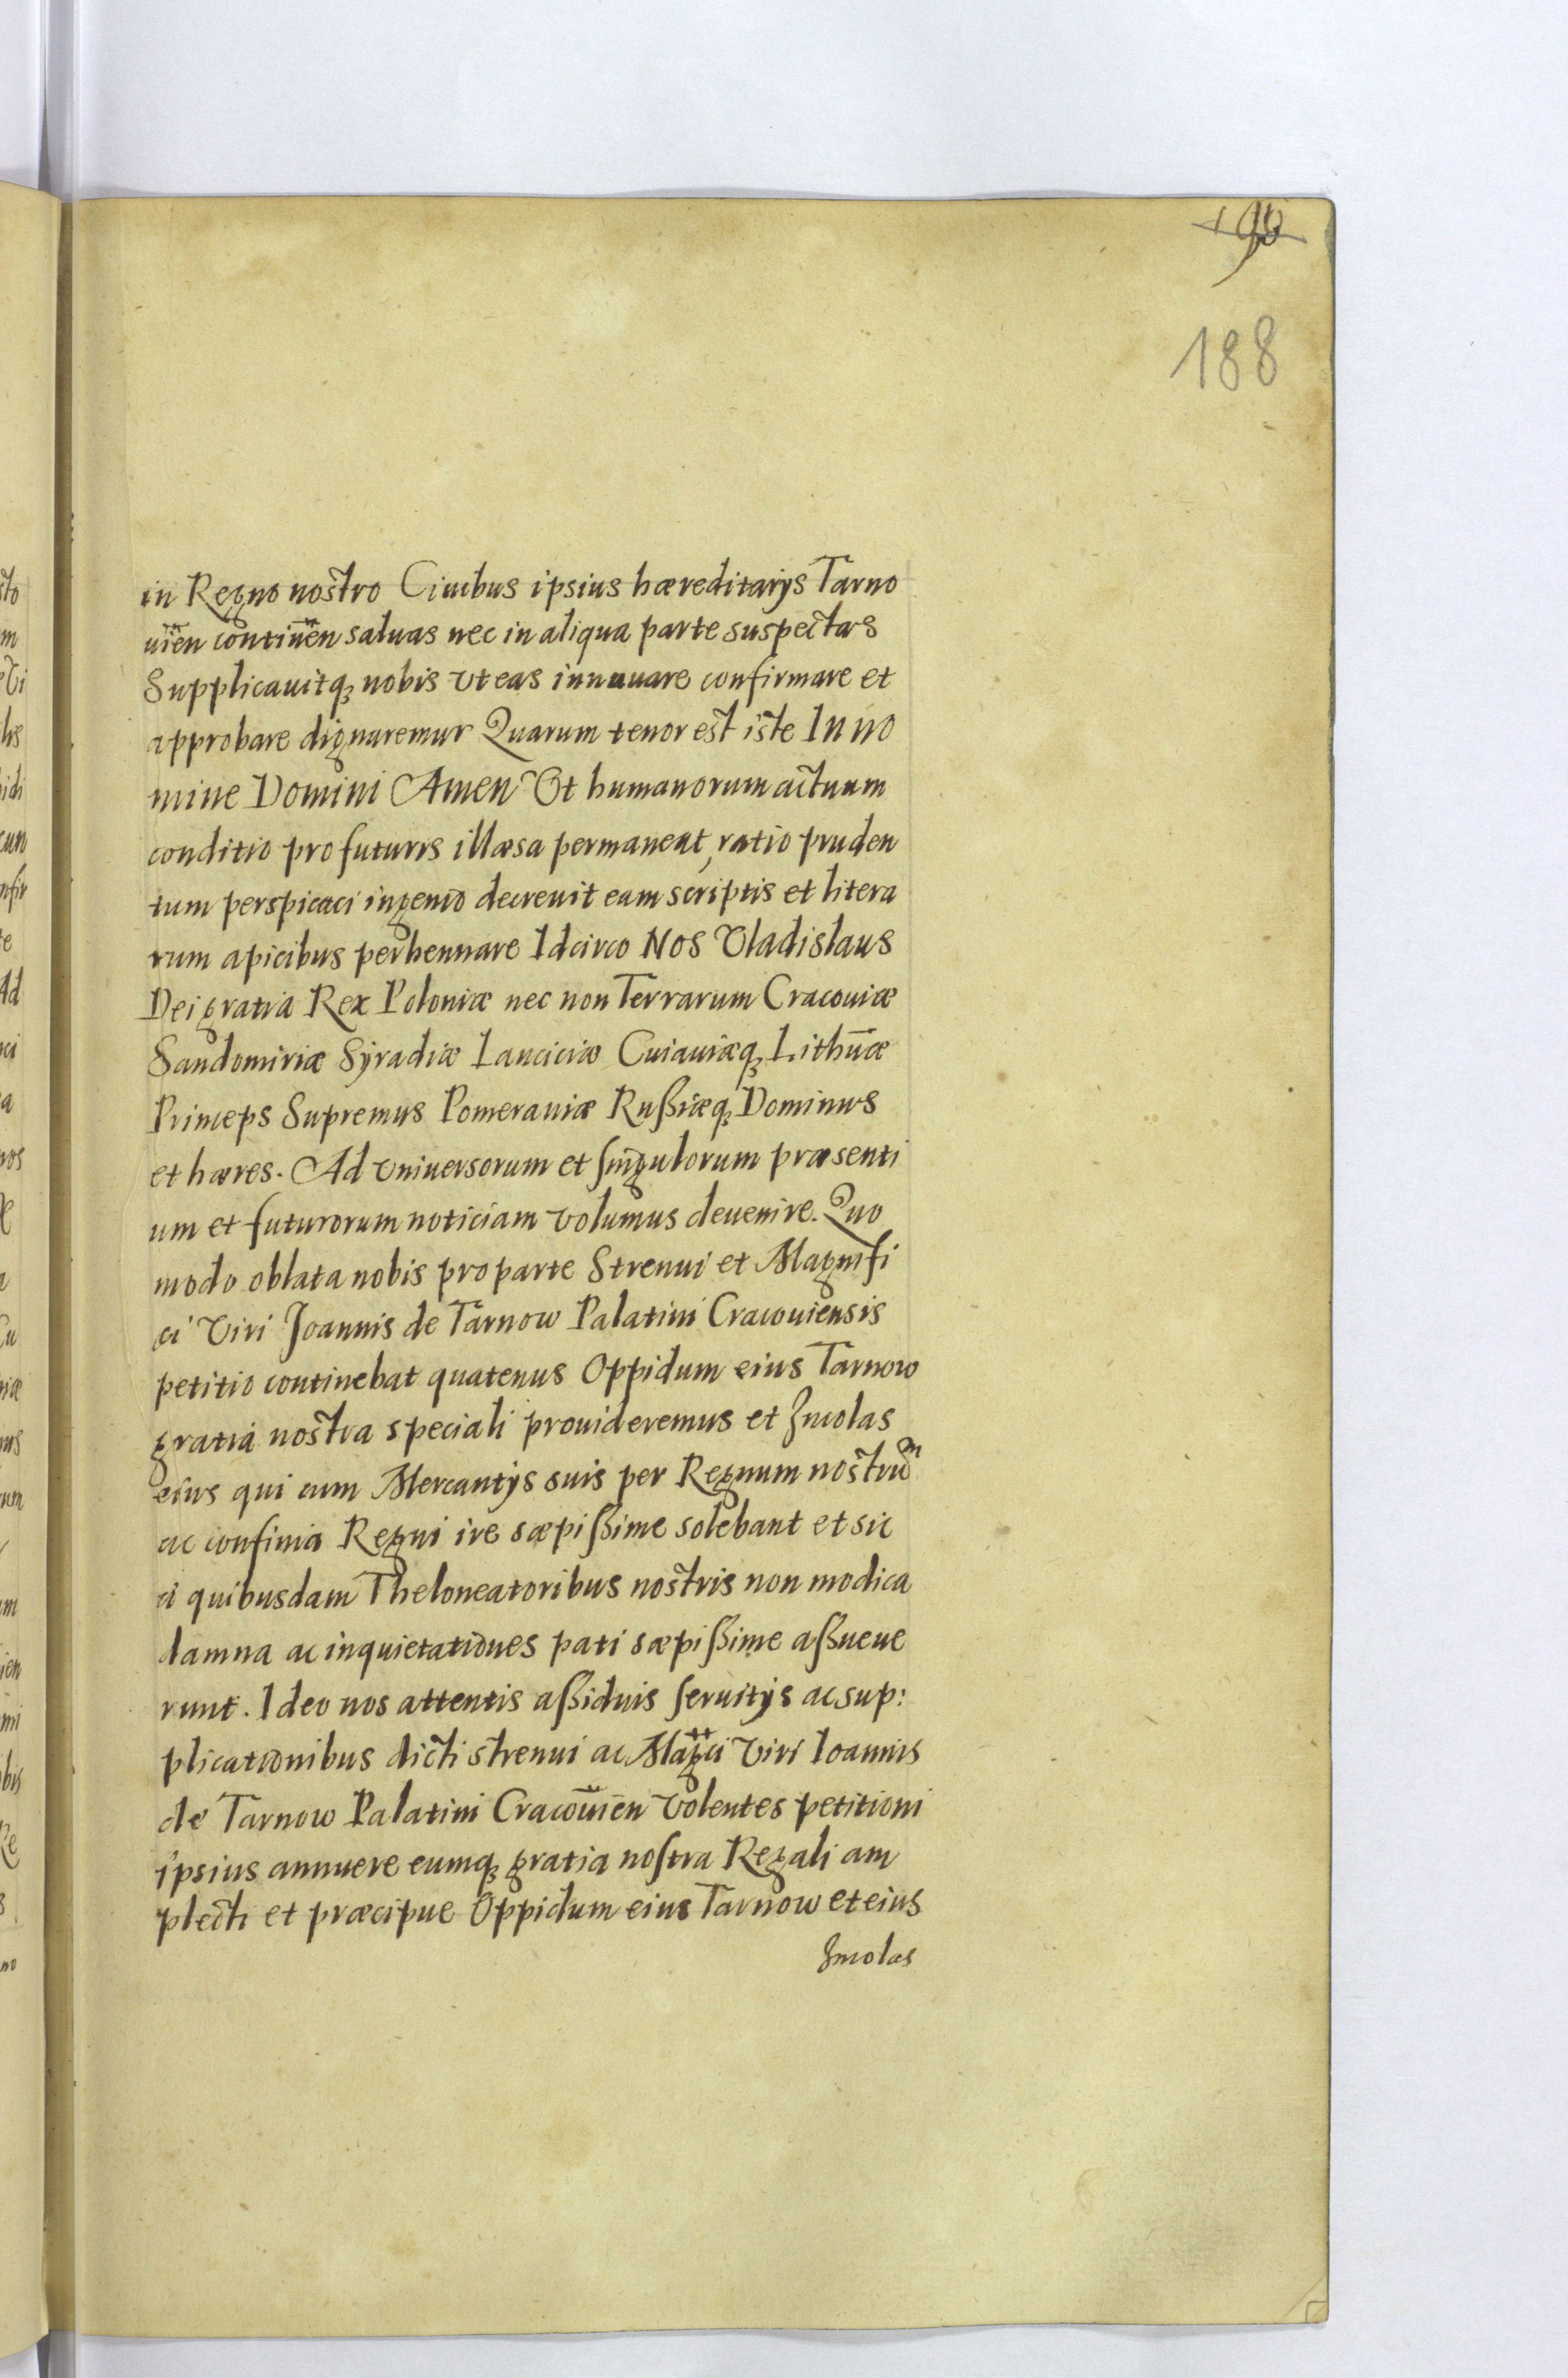 188
in Regno nostro Ciuibus ipsius hæreditarys Tarno
uien̄ continen̄ saluas nec in aliqua parte suspectas
Supplicauitq nobis vt eas innouare confirmare et
approbare dignaremur Quarum tenor est iste In no
mine Domini Amen Vt humanorum actuum
conditio pro futuris illæsa permaneat, ratio pruden
tum perspicaci ingenio decreuit eam scriptis et litera
rum apicibus perhennare Idcirco Nos Vladislaus
Dei gratia Rex Poloniæ nec non Terrarum Cracouiæ
Sandomiriæ Syradiæ Lanciciæ Cuiauiæq Lithu̅æ
Princeps Supremus Pomeraniæ Rußiæq Dominus
et hæres. Ad vniuersorum et singulorum præsenti
um et futurorum noticiam volumus deuenire. Quo
modo oblata nobis pro parte Strenui et Magnifi
ci Viri Joannis de Tarnow Palatini Cracouiensis
petitio continebat quatenus Oppidum eius Tarnow
gratia nostra speciali prouideremus et Jncolas
eius qui cum Mercantys suis per Regnum nostrū
ac confinia Regni ire sæpißime solebant et sic
a quibusdam Theloneatoribus nostris non modica
damna ac inquietationes pati sæpißime aßueue
runt. Ideo nos attentis aßiduis seruitys ac sup:
plicationibus dicti strenui ac Mag̅ci Viri Ioannis
de Tarnow Palatini Cracouien̄ Volentes petitioni
ipsius annuere eumq gratia nostra Regali am
plecti et præcipue Oppidum eius Tarnow et eius
Jncolas